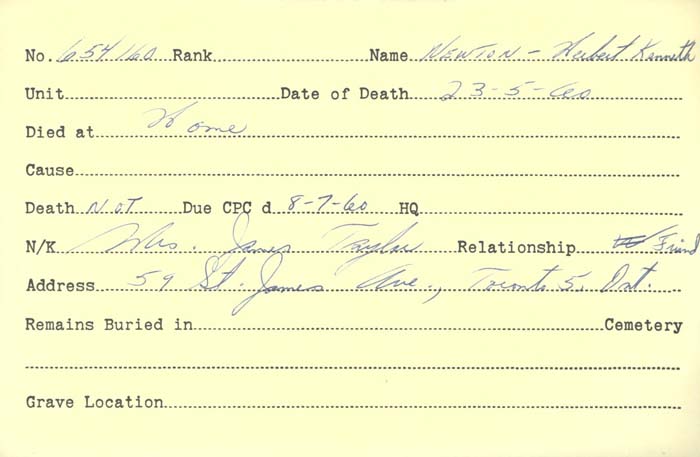 No. 654160 Rank Name NEWTON - Herbert Kenneth
Unit Date of Death 23-5-60
Died at Home
Cause
Death NOT Due CPC d 8-7-60 HQ
N/K Mrs. James Taylor Relationship Friend
Address 59 St. James Ave., Toronto 5, Ont.
Remains Buried in Cemetery
Grave Location